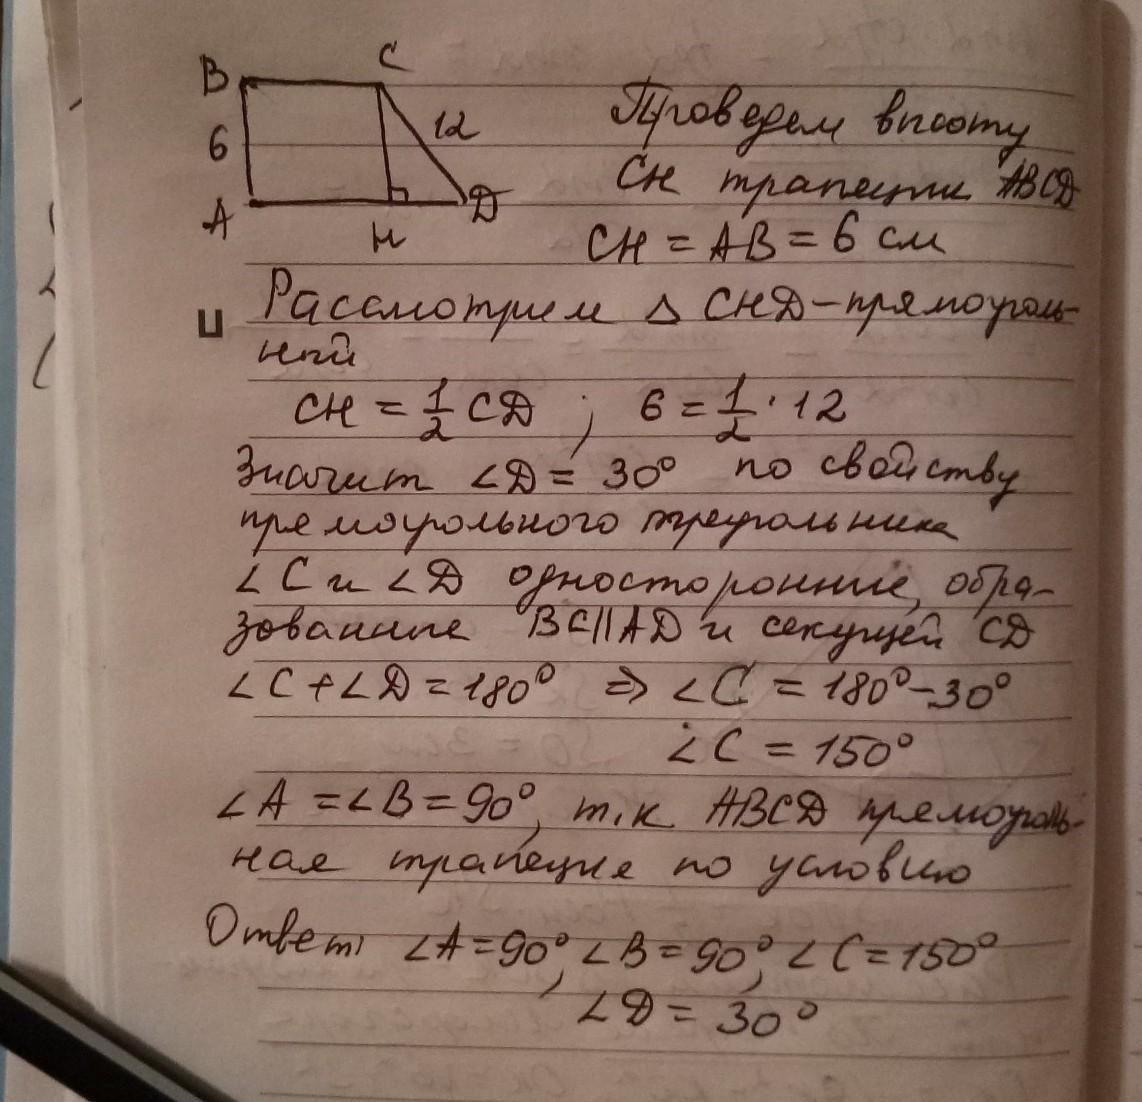 B C
6 12
A H D
Проведем высоту
CH трапеции ABCD
CH = AB = 6 см
Рассмотрим △ CHD – прямоуголь-
ный
CH = 1/2 CD ; 6 = 1/2 · 12
Значит ∠D = 30° по свойству
прямоугольного треугольника
∠C и ∠D односторонние, обра-
зованные BC||AD и секущей CD
∠C + ∠D = 180° ⇒ ∠C = 180° – 30°
∠C = 150°
∠A = ∠B = 90°, т.к ABCD прямоуголь-
ная трапеция по условию
Ответ: ∠A = 90°, ∠B = 90°, ∠C = 150°
∠D = 30°